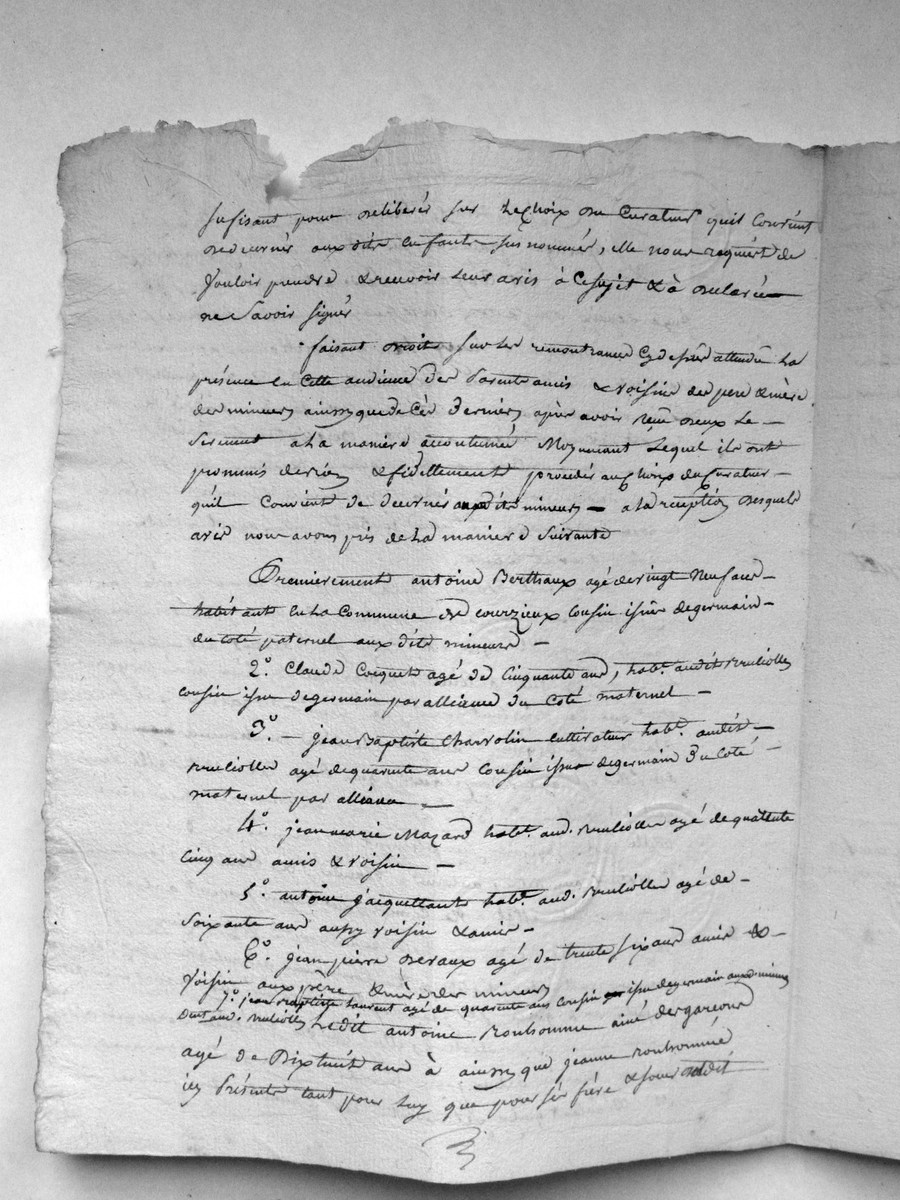 sufisant pour deliberér sur le choix du Curateur quil convient
decernér aux dits enfants susnommés, elle nous requiert de
vouloir prendre & recevoir leur avis à ce sujet & à declaré
ne Savoir Signér
faisant droit sur les remontrances cy dessus attendu la
présence en cette audience des Parents amis & voisins des pere & mère
des mineurs ainsy que de cés derniers aprés avoir reçu deux le
Serment a la maniere accoutumée Moyenant lequel ils ont
promis de bien & fidellement proceder au choix du Curateur
qu'il Convient de decernér auxdits mineurs a la reception desquels
avis nous avons procédé de la maniere Suivante
Premierement antoine Berthaux agé de vingt Neuf ans
habitant en la Commune de courzieux cousin issu de germain
du coté paternel aux dits mineurs
2°. Claude Coquet agé de Cinquante ans, habt. audit Brullioles
cousin issu de germain par alliance du Coté maternel
3°. jean Baptiste Charvolin cultivateur habt. audit
Brullioles agé de quarente ans Cousin issus de germain Du Coté
maternel par alliance
4°. jean marie Mazard habt. aud. Brullioles agé de quarente
Cinq ans amis & voisin
5°. antoine jacquettant habt. aud. Brullioles agé de
Soixante ans aussy voisin & amis
6°. jean pierre Devaux agé de trente six ans amis &
voisin aux père & mère des mineurs
7°. jean Baptiste Laurent agé de quarente ans cousin issu de germain aux dits mineurs
dmt aud. Brullioles Ledit antoine Bonhomme ainé des garcons
agé de Dixhuit ans à ainsy que jeanne Bonhomme
icy Présente tant pour luy que pour sés frére & soeur adit